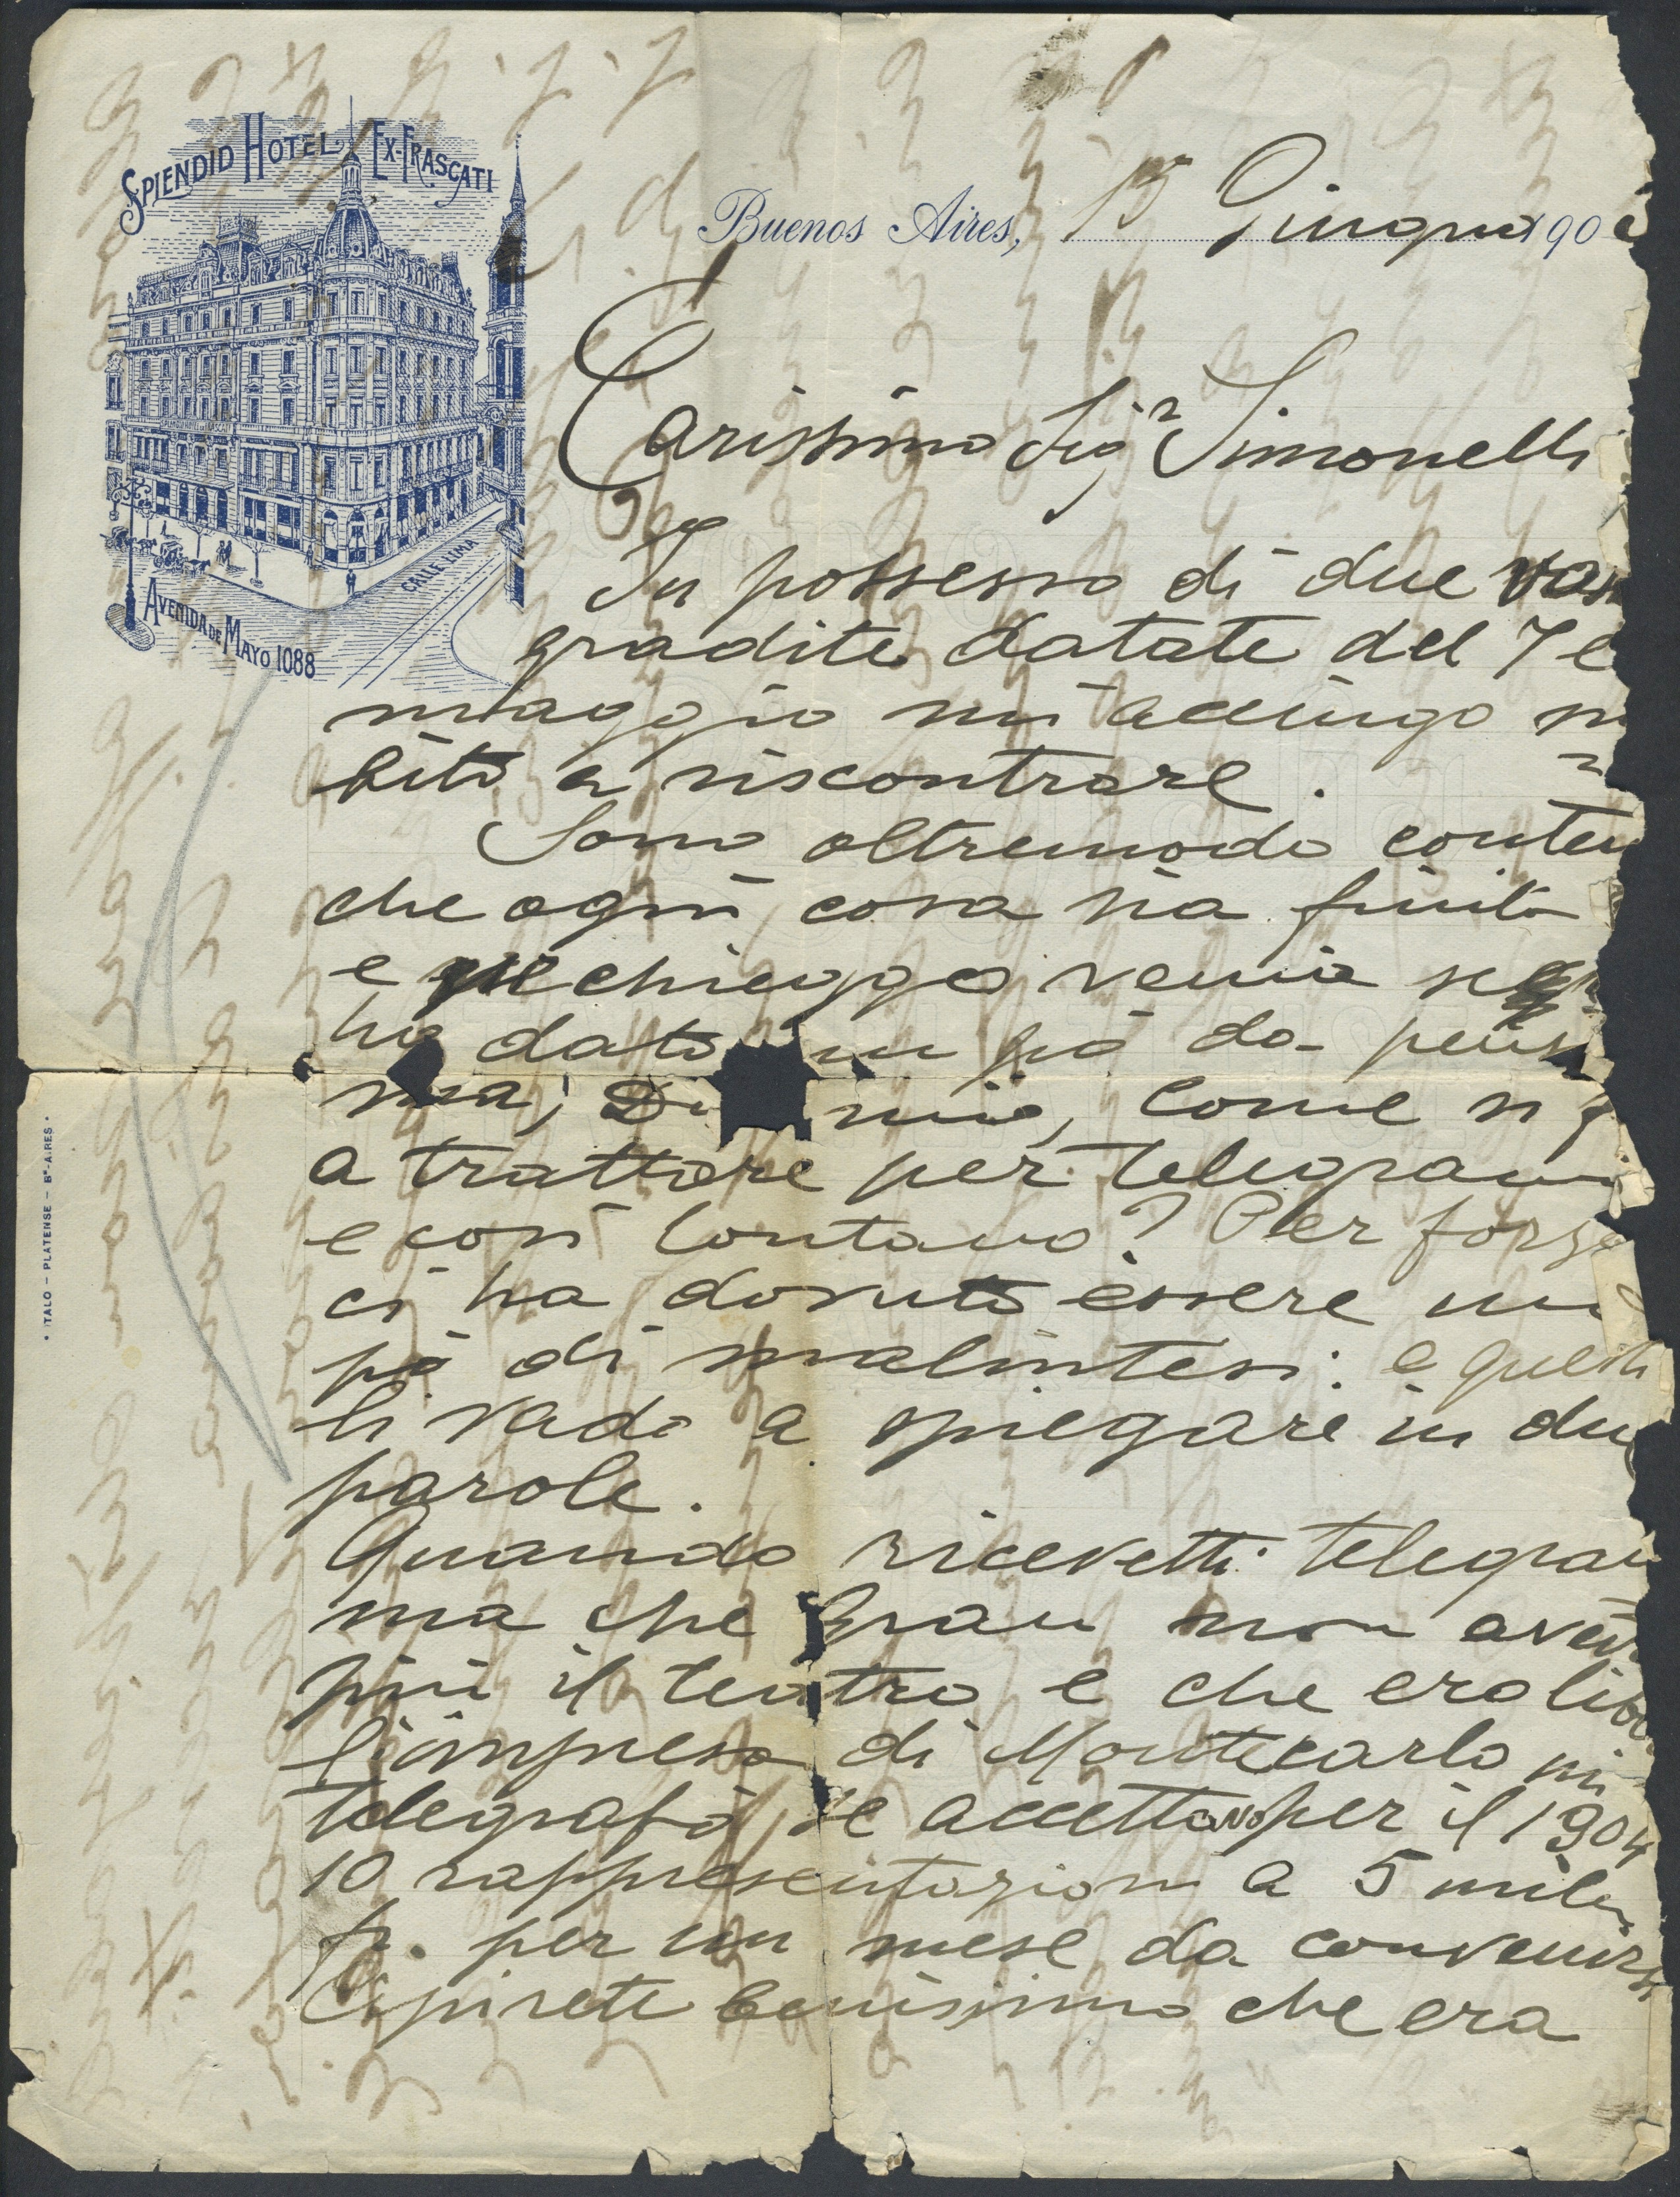 SPLENDID HOTEL EX-FRASCATI
CALLE LIMA
AVENIDA DE MAYO 1088
Buenos Aires, 15 Giugno 190
Carissimo Sigr Simonelli
In possesso di due
gradite datate del 7 e
maggio mi accingo
bito a riscontrare.
Sono oltremodo conten
che ogni cosa sia finita
e chieggo venia se
ho dato un pò da pens
ma, Di mio, come si f
a trattare per telegram
e così lontano? Per forza
ci ha dovuto essere un
pò di malintesi: e questi
li vado a spiegare in due
parole.
Quando ricevetti telegra
ma che Grau non avev
più il teatro e che ero lib
l'impresa di Montecarlo mi
telegrafò se accettavo per il 1904
10 rappresentazioni a 5 mila
fr. per un mese da convenirsi
Capirete benissimo che era
• ITALO – PLATENSE – Bs-AIRES •